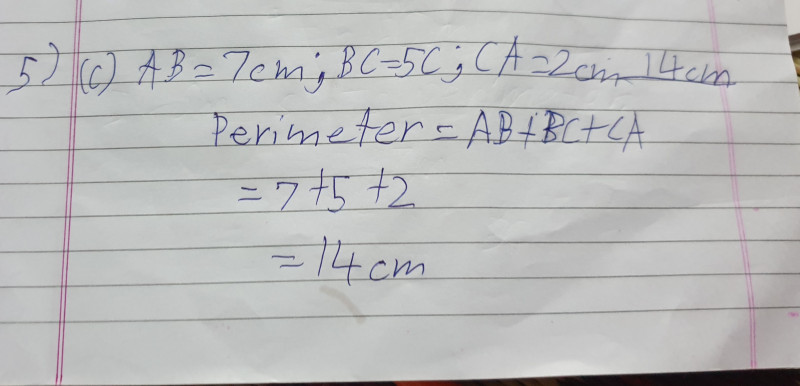 5) (c) AB = 7cm; BC=5C; CA=2cm 14cm
Perimeter = AB+BC+CA
= 7+5+2
= 14cm